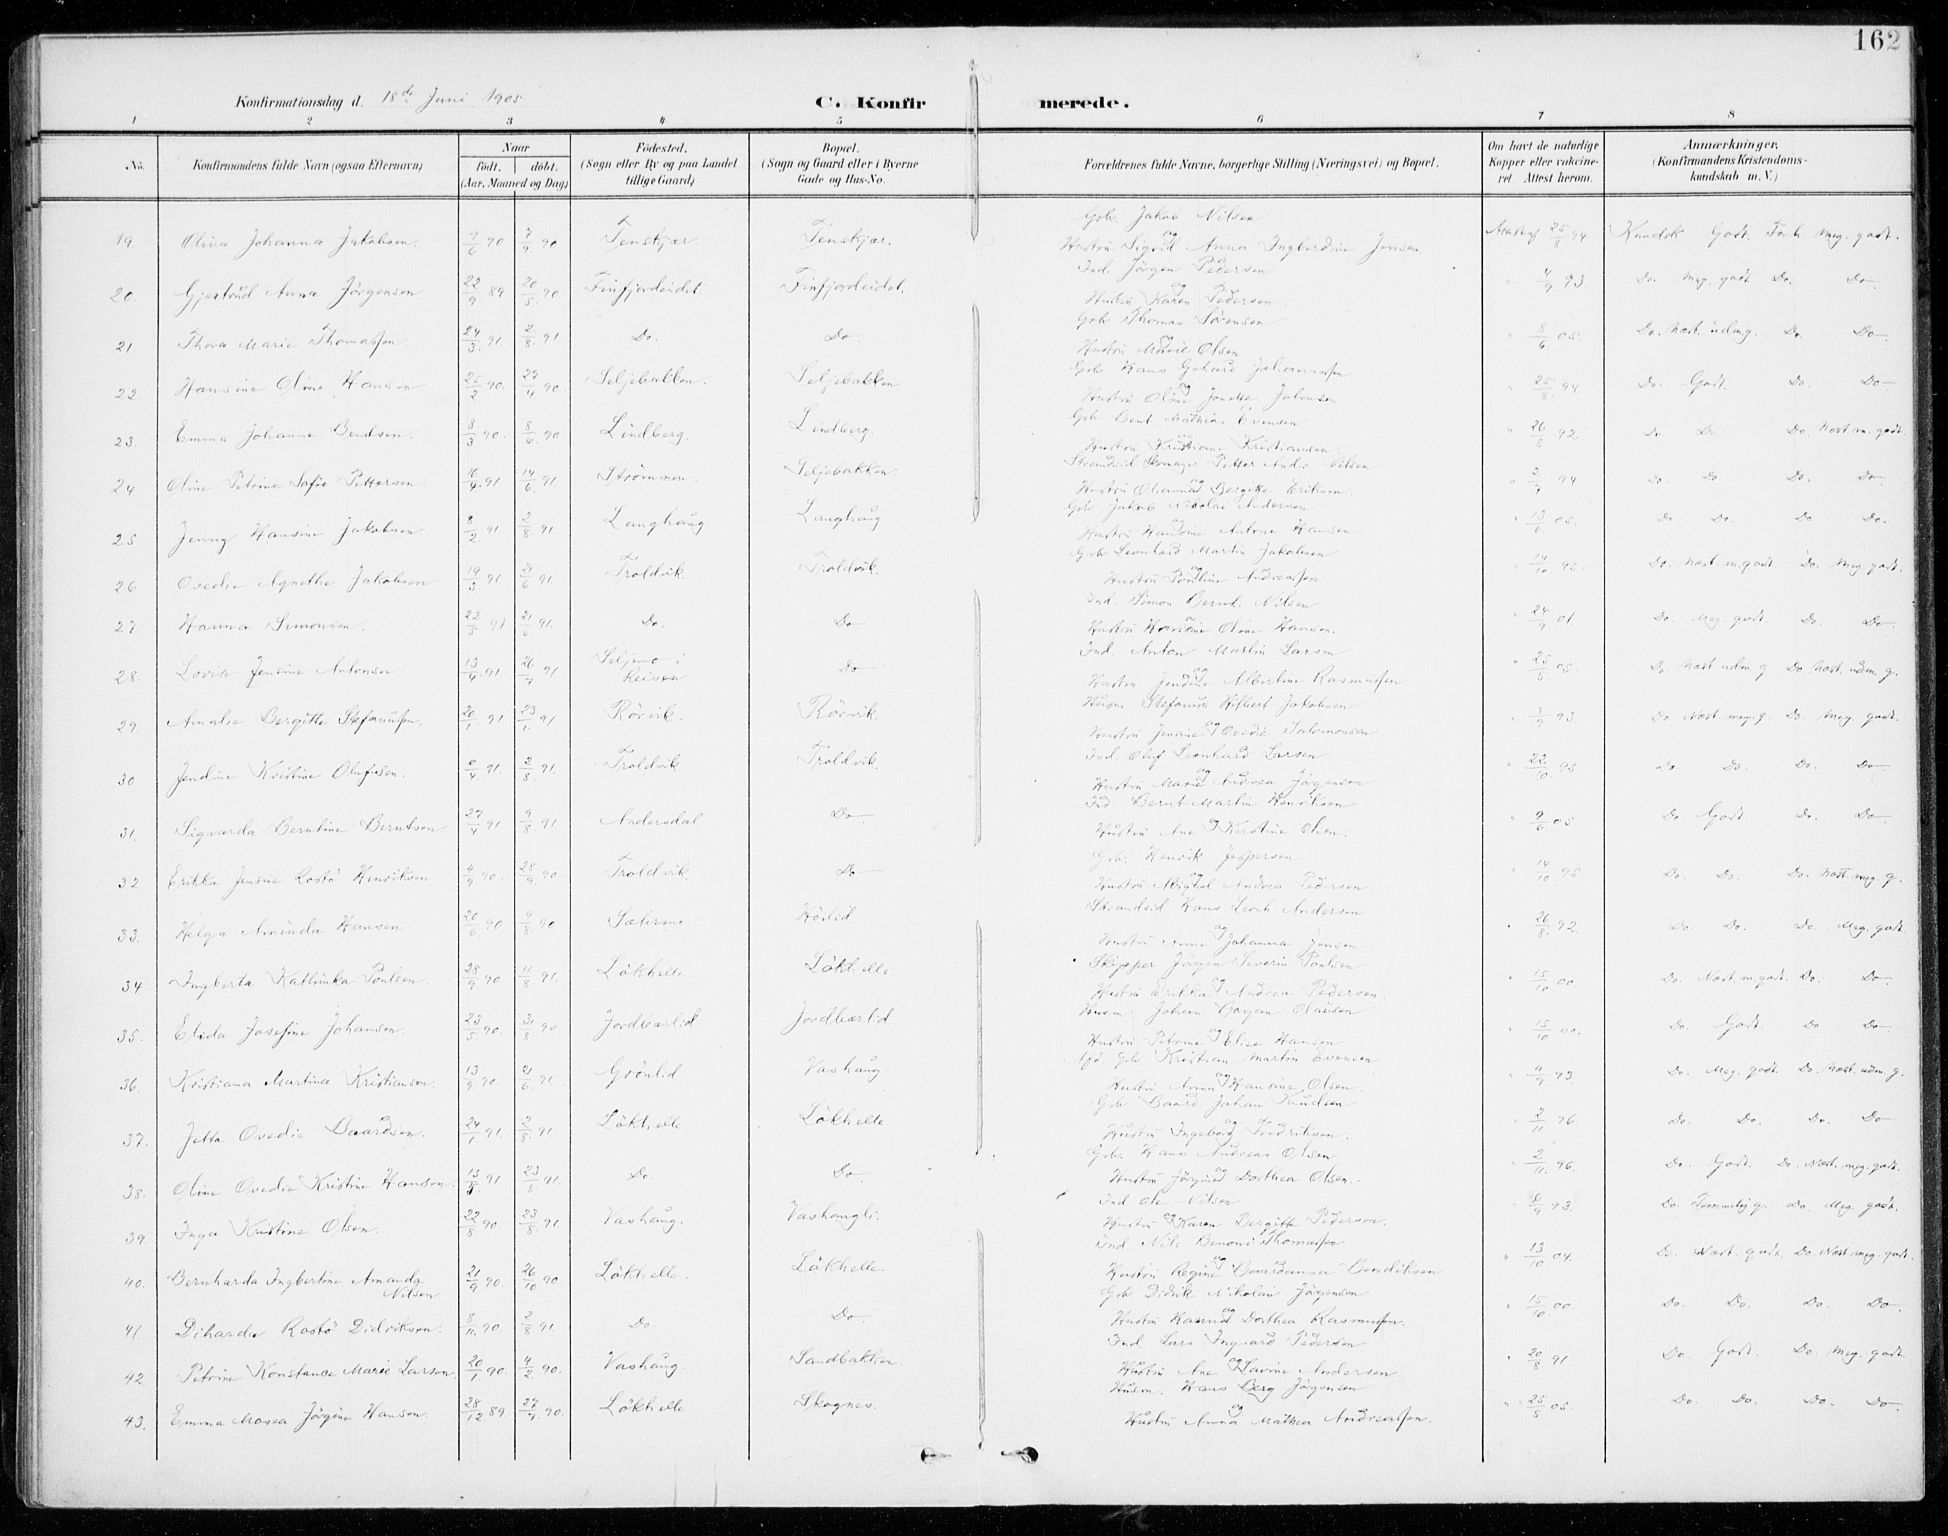 162
Konfirmationsdag d. 18de Juni 1905
C. Konfirmerede.
1 2 3 4 5 6 7 8
No. Konfirmandens fulde Navn (ogsaa Efternavn) Naar født. døbt. (Aar, Maaned og Dag) Fødested. (Sogn eller By og paa Landet tillige Gaard) Bopæl. (Sogn og Gaard eller i Byerne Gade og Hus-No. Forældrenes fulde Navne, borgerlige Stilling (Næringsvei) og Bopæl. Om havt de naturlige Kopper eller vaksineret. Attest herom. Anmærkninger. (Konfirmandens Kristendomskundskab m. V.)
Gbr. Jakob Nilsen
19. Johanna Jakobsen. 9/6 90 7/9 90 Tenskjær. Tenskjær. Hustru Sigrid Anna Ingberdine Jensen 25/8 94 Kundsk Godt. Forh. Meg. godt.
Ind. Jörgen Pedersen
20. Gjertrud Anna Jörgensen 22/9 89 20/5 90 Finfjordeidet Finfjordeidet. Hustru Karen Pedersen. " 4/9 93. Do. Meg. godt Do. Do.
Gbr Thomas Sörensen
21 Thora Marie Thomassen 24/3 91. 2/8 91 Do. Do. Hustru Marie Olsen " 8/6 05. Do. Næst. udm. g. Do. Do
Gbr. Hans Johannessen
22 Hansine Oline Hansen 25/2 90. 27/4 90. Seljebakken. Seljebakken Hustru Oline Jonette Johnsen " 25/8 94 Do. Godt. Do. Do
Gbr Bent Mathias Evensen
23. Emma Johanne Bendsen. 8/3 90. 8/6 90. Lindberg. Lindberg. Hustru Kristiane Kristiansen. " 26/8 92. Do Do. Do. Næst. m. godt.
Petter Andr. Nilsen
24 Oline Petrine Sofie Pettersen 16/4 91 14/6 91 Strömmen. Seljebakken. Hustru Bergitte Eriksen. " 2/7 94 Do. Do Do. Do
Gbr Jakob Nikolai Andersen
25 Jenny Hansine Jakobsen 8/2 91 2/8 91. Langhaug Langhaug Hustru Hansine Antone Hansen " 13/6 05. Do. Do. Do Do.
Gbr Leonhard Martin Jakobsen
26 Ovedie Agnethe Jakobsen 19/3 91 21/6 91 Troldvik. Troldvik. Hustru Pauline Andreassen. " 14/10 95. Do Næst. m. godt. Do. Meg. godt.
Ind. Simon Bernt. Nilsen
27. Hanna Simonsen. 22/3 91 21/6 91. Do. Do Hustru Oline Hansen. " 24/9 01. Do. Meg. godt. Do. Do.
Ind. Anton Martin Larsen
28. Lovise Jensine Antonsen 13/4 91 26/7 91 i Reisen Do Hustru Albertine Rasmussen " 25/5 05. Do. Næst udm. g. Do Næst. udm. g.
Husm. Stefanus Jakobsen
29. Amalie Bergitte Stefanussen. 20/1 91 23/1 91 Rörvik. Rörvik. Hustru Ovedie Salomonsen " 3/9 93. Do. Næst. meg. g. Do. Meg. godt.
Ind Olef Leonhard Larsen
30. Jendine Kristine Olufsen. 2/4 91. 2/8 91. Troldvik Troldvik. Hustru Marie Andrea Jörgensen " 22/10 95. Do Do. Do. Do
Ind Bernt Martin Henriksen
31. Sigvarda Berntine Berntsen 27/4 91 9/8 91. Andersdal Do Hustru Ane og Kirstine Olsen. " 9/6 05. Do. Godt. Do. Do.
Gbr. Henrik Jespersen
32. Erikka Jensine Rostö Henriksen 4/9 90. 28/9 90 Troldvik. Do Hustru Andrea Pedersen. " 14/10 95. Do. Do. Do. Næst. meg. g.
Hans Andersen
33. Helga Aminda Hansen 20/6 90 9/8 90 Hustru Anne og Johanna Jensen " 26/8 92. Do. Do. Do. Meg. godt.
Skipper Jörgen Severin Paulsen
34 Ingberta Kathinka Paulsen. 28/9 90 11/8 91. Lökhelle. Lökhelle Hustru Erikka og Andrea Pedersen. " 15/10 00. Do. Næst. m. godt Do. Do.
Johan Olausen
35. Elida Josefine Johansen. 23/5 90. 31/8 90 Jordbærlid Jordbærlid Hustru Petrine og Elise Hansen " 15/10 00. Do. Godt. Do. Do.
Gbr. Kristian Martin Evensen
36. Kristiana Martina Kristiansen. 13/9 90. 21/6 91. Grönlid Vashaug. Hustru Anna og Hansine Olsen. " 4/9 93. Do. Meg. godt. Do. Næst. udm. g.
Gbr. Baard Johan Knudsen
37. Jetta Ovedie Baardsen. 24/1 91. 2/8 91 Lökhelle. Lökhelle Hustru Ingeborg Fredriksen. " 2/11 96. Do. Do. Do. Do
Gbr. Hans Andreas Olsen
38. Oline Ovedie Kristine Hansen. 15/3 91 23/8 91. Do. Do. Hustru Dorthea Olsen. " 2/11 96. Do. Godt. Do. Næst. meg. godt.
Ind Ole Nilsen
39. Inga Kristine Olsen. 22/8 90. 23/8 91. Vashaug. Vashaugli. Hustru Karen Bergitte Pedersen. " 93. Do. Temmelig g. Do. Meg. godt.
Ind Nils Benoni Thomassen
40. Bernharda Ingbertine Amanda Nilsen 21/9 90 26/10 90. Lökhelle. Lökhelle. Hustru Regine Bendiksen " 13/10 04. Do. Næst. godt. Do. Næst meg. godt.
Gbr Didrik Nikolai Jörgensen
41. Diharda Rostö Didriksen. 8/11 90. 2/8 91. Do. Do. Hustru Dorthea Rasmussen. " 15/10 00 Do. Do. Do. Do.
Ind Lars Ingvard Pedersen
42. Petrine Konstance Marie Larsen. 20/1 90. 4/2 90. Vashaug. Sandbakken. Hustru Ane og Lavine Andersen " 20/8 91 Do. Godt. Do. Meg. godt
Husm. Hans Berg Jörgensen
43. Emma Mosea Jörgine Hansen. 28/12 89 27/7 90. Lökhelle Skognes. Hustru Anna og Mathea Andreassen. " 25/5 05. Do. Do. Do. Do.